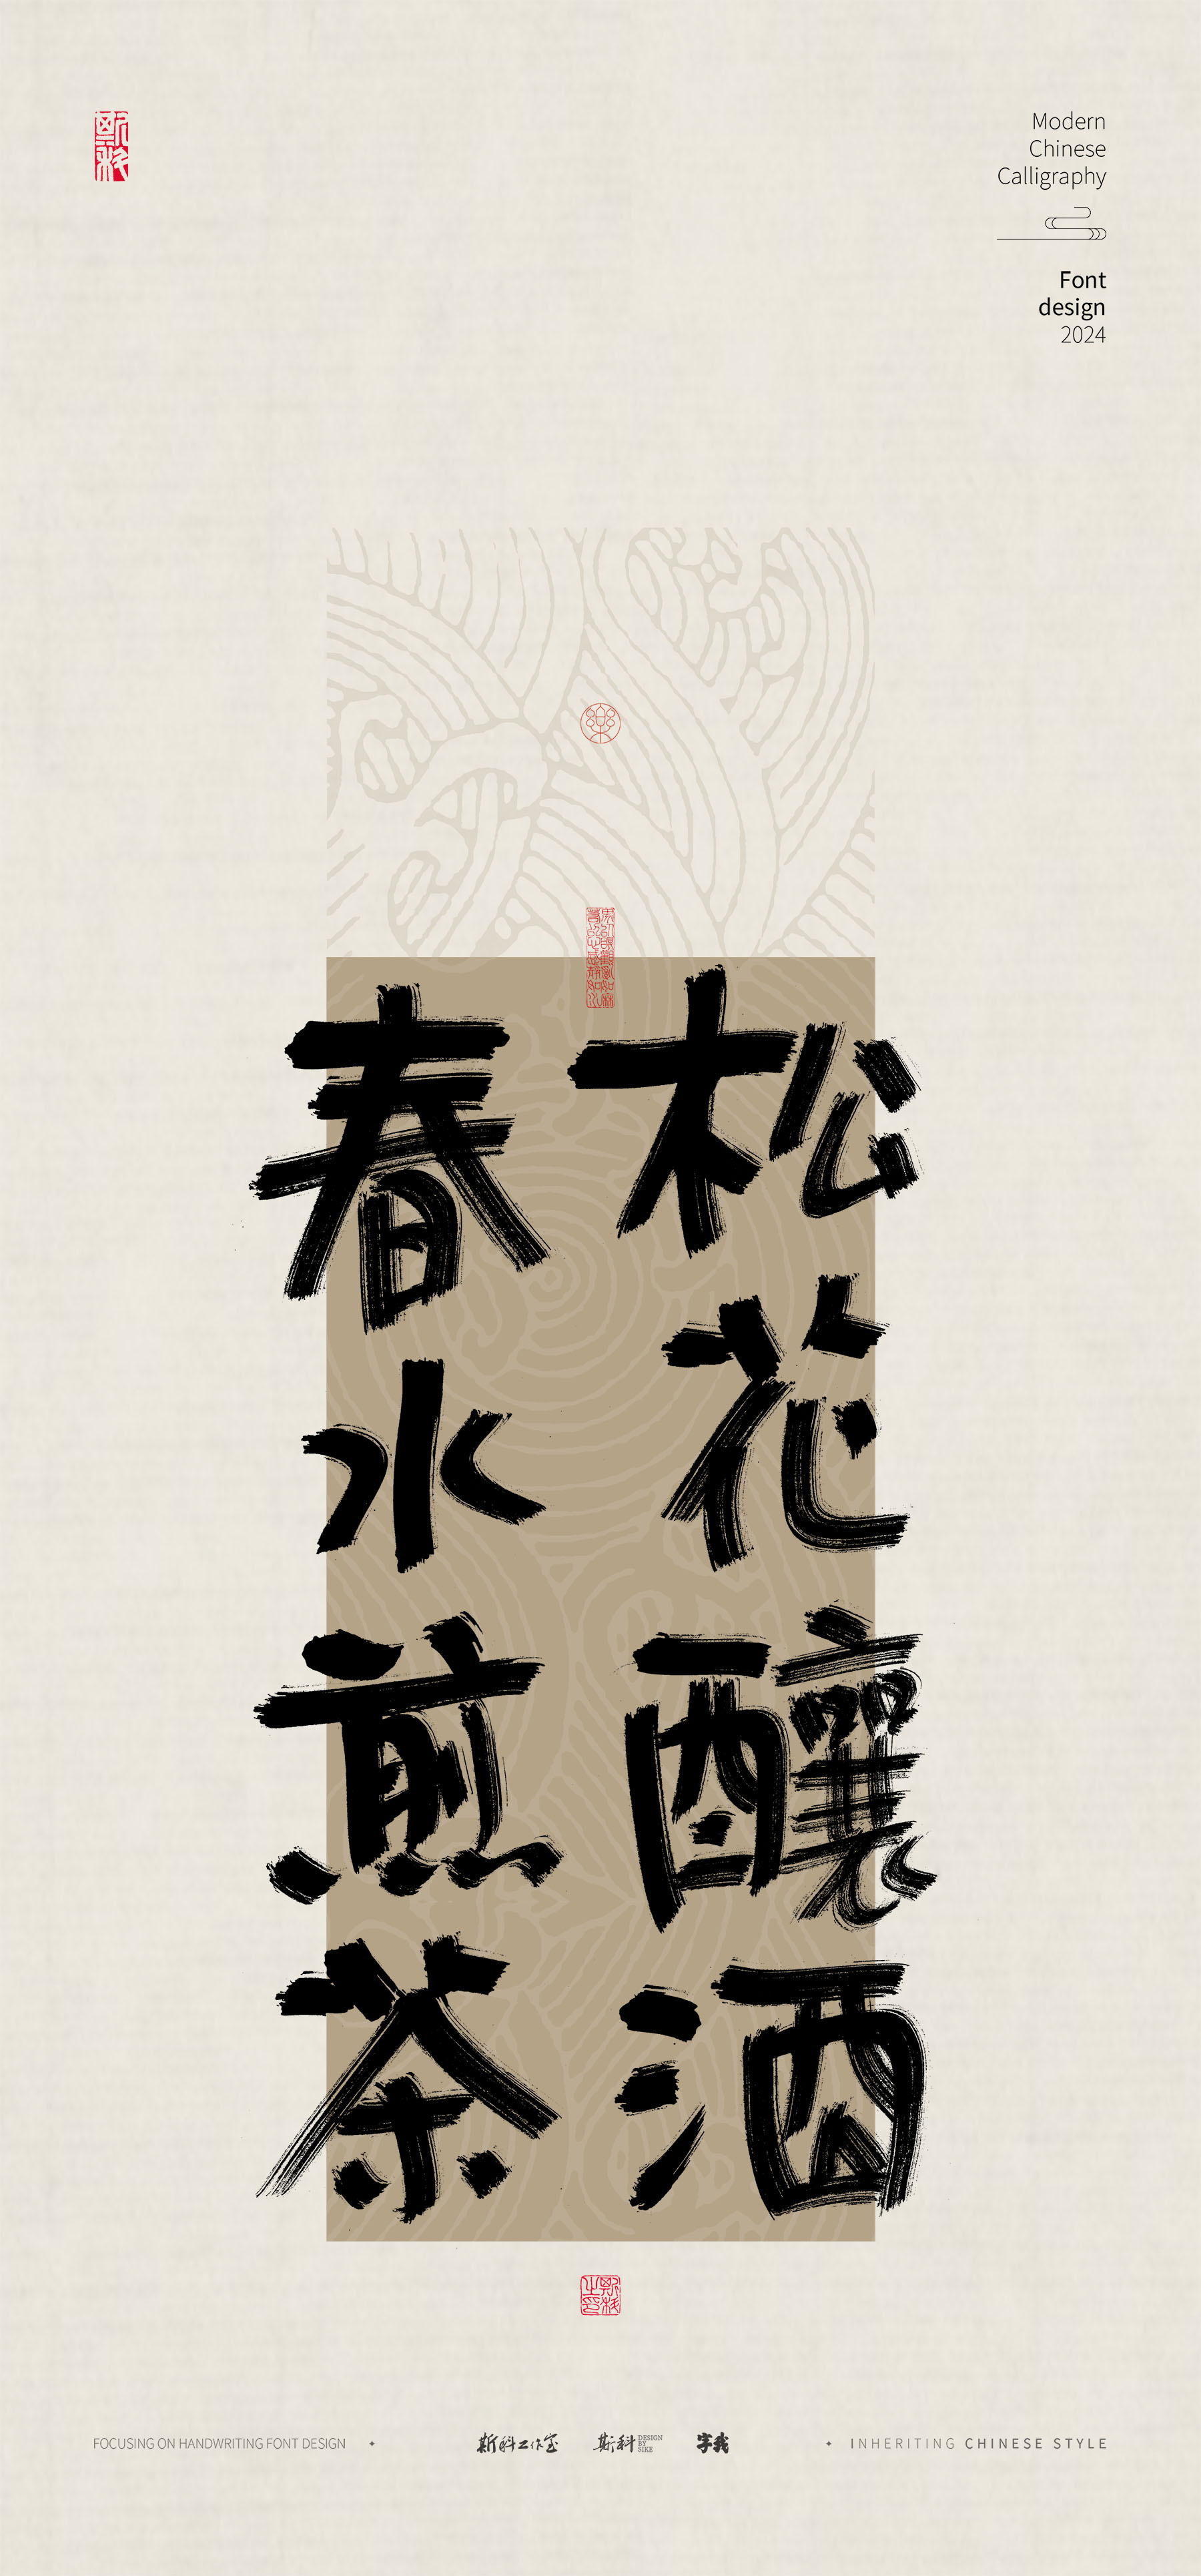 斯科
Modern
Chinese
Calligraphy
Font
design
2024
松花酿酒
春水煎茶
斯科之印
FOCUSING ON HANDWRITING FONT DESIGN
斯科工作室
斯科
DESIGN
BY
SIKE
字我
INHERITING CHINESE STYLE